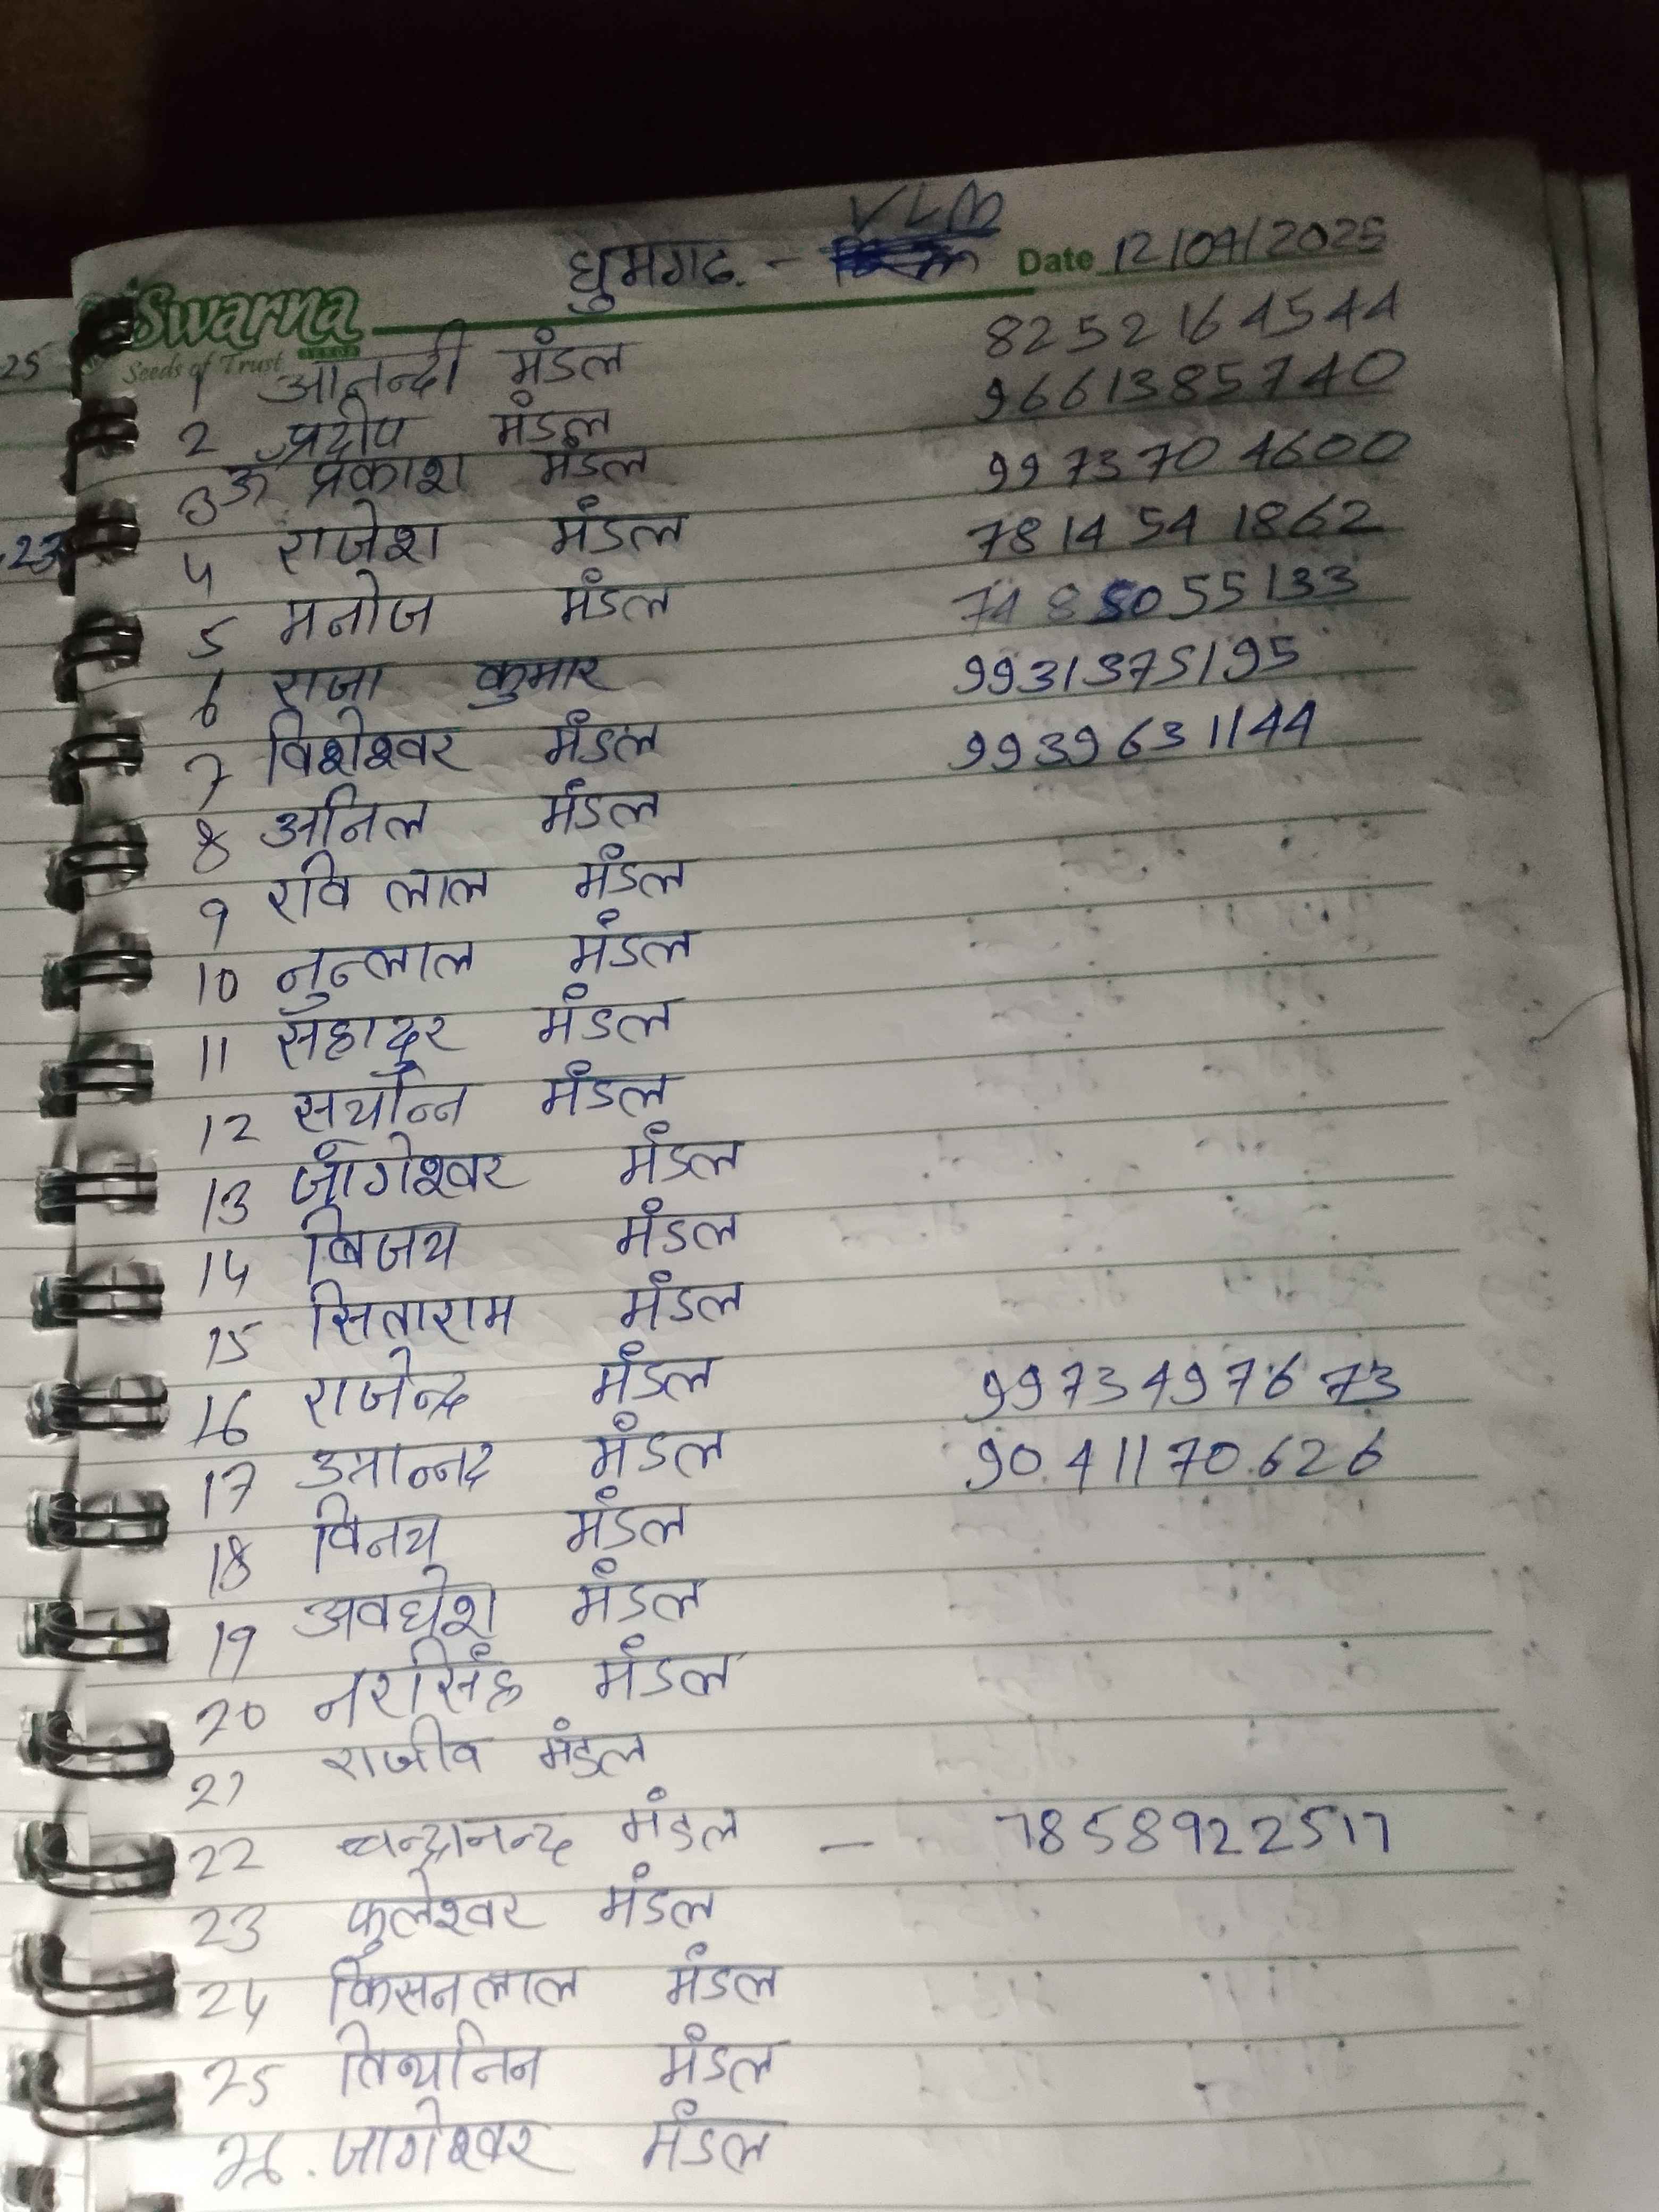 VLM
घुमगढ. - Date 12/04/2025
Swarna
Seeds of Trust
1 आनन्दी मंडल 8252164544
2 प्रदीप मंडल 9661385740
3 ऊँ प्रकाश मंडल 9973704600
4 राजेश मंडल 7814541862
5 मनोज मंडल 7485055133
6 राजा कुमार 9931375195
7 विशेश्वर मंडल 9939631144
8 अनिल मंडल
9 रवि लाल मंडल
10 नुन्लाल मंडल
11 सहादुर मंडल
12 मंडल
13 जागेश्वर मंडल
14 बिजय मंडल
15 सिताराम मंडल
16 राजेन्द्र मंडल 9973497673
17 मंडल 9041170626
18 विनय मंडल
19 अवधेश मंडल
20 नरसिंह मंडल
21 राजीव मंडल
22 चन्द्रानन्द मंडल — 7858922517
23 फुलेश्वर मंडल
24 किसनलाल मंडल
25 मंडल
26. जागेश्वर मंडल